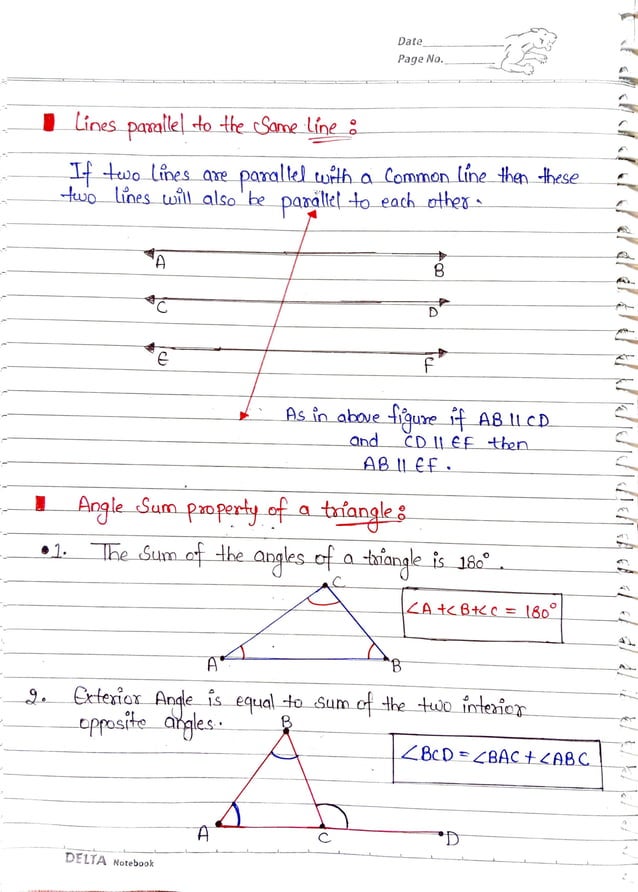 Date
Page No.
Lines parallel to the Same line :
If two lines are parallel with a Common line then these
two lines will also be parallel to each other.
A
B
C
D
E
F
As in above figure if AB || CD
and CD || EF then
AB || EF.
Angle Sum property of a triangle :
•1. The Sum of the angles of a triangle is 180°.
C
∠A + ∠B + ∠C = 180°
A
B
2. Exterior Angle is equal to sum of the two interior
opposite angles.
B
∠BCD = ∠BAC + ∠ABC
A
C
D
DELTA Notebook